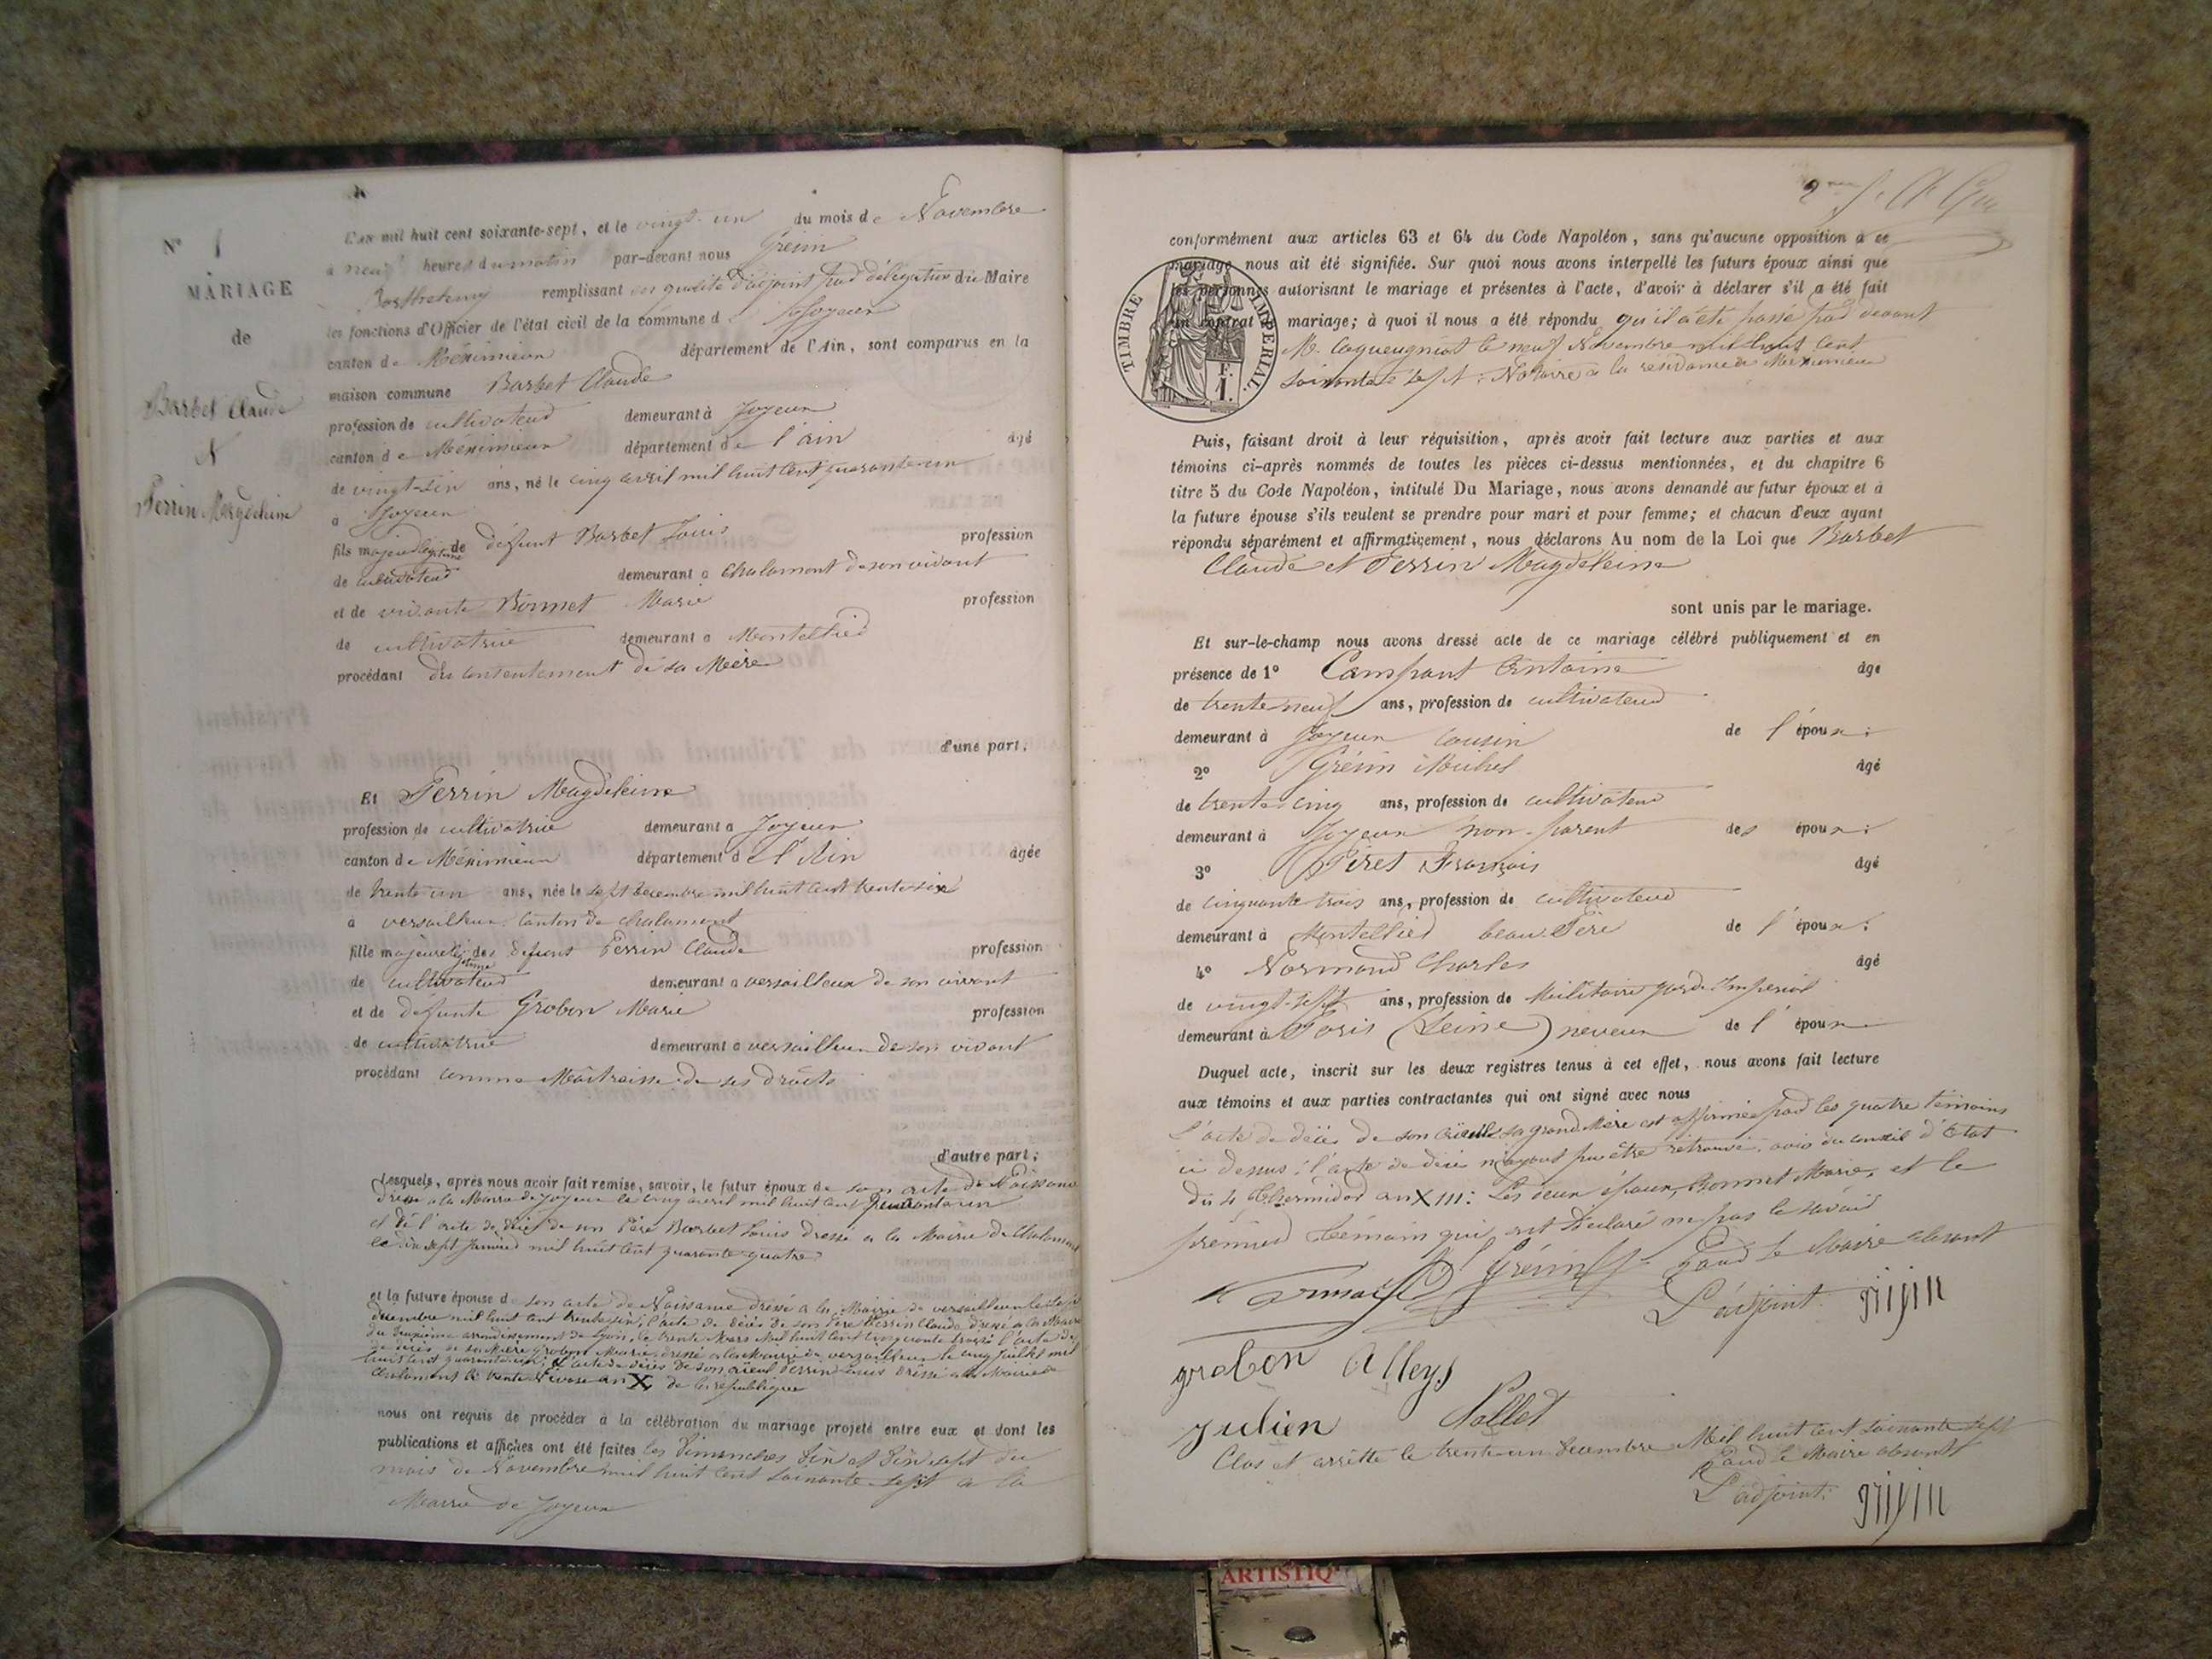 Nº 1
MARIAGE
de
Barbet Claude
&
Perrin Magdeleine
L'an mil huit cent soixante-sept, et le vingt-un du mois de Novembre
à neuf heures du matin par-devant nous Grésin
Barthelemy remplissant en qualité d'adjoint par délégation du Maire
les fonctions d'Officier de l'état civil de la commune de Joyeux
canton de Méximieux département de l'Ain, sont comparus en la
maison commune Barbet Claude
profession de cultivateur demeurant à Joyeux
canton de Méximieux département de l'ain âgé
de vingt-six ans, né le cinq avril mil huit cent quarante un
à Joyeux
fils majeur légitime de défunt Barbet Louis profession
de cultivateur demeurant a Chalamont de son vivant
et de vivante Bonnet Marie profession
de cultivatrice demeurant a Montellier
procédant du consentement de sa Mère
d'une part,
Et Perrin Magdeleine
profession de cultivatrice demeurant a Joyeux
canton de Méximieux département de l'Ain âgée
de trente un ans, née le sept decembre mil huit cent trente-six
à versailleux canton de chalamont
fille majeure légitime des defunt Perrin Claude profession
de cultivateur demeurant a versailleux de son vivant
et de défunte Grobon Marie profession
de cultivatrice demeurant a versailleux de son vivant
procédant comme Maitraisse de ses droits
d'autre part;
Lesquels, après nous avoir fait remise, savoir, le futur époux de son acte de Naissance
dressé a la Mairie de Joyeux le cinq avril mil huit cent quarante un
et de l'acte de décès de son Père Barbet Louis dressé a la Mairie de Chalamont
le dix sept Janvier mil huit cent quarante quatre
et la future épouse d son acte de Naissance dressé a la Mairie de versailleux le sept
decembre mil huit cent trente six, l'acte de décès de son Père Perrin Claude dressé a la Mairie
du deuxième arrondissement de Lyon, le trente Mars mil huit cent cinquante trois, l'acte de
de décès de sa Mère Grobon Marie, dressé a la Mairie de versailleux le cinq Juillet mil
huit cent quarante un; et l'acte de décès de son aïeul Perrin dressé a la Mairie de
Chalamont le trente Nivose an X de la république
nous ont requis de procéder à la célébration du mariage projeté entre eux et dont les
publications et affiches ont été faites les Dimanches dix et dix sept du
mois de Novembre mil huit cent soixante sept a la
Mairie de Joyeux
conformément aux articles 63 et 64 du Code Napoléon, sans qu'aucune opposition à ce
mariage nous ait été signifiée. Sur quoi nous avons interpellé les futurs époux ainsi que
les personnes autorisant le mariage et présentes à l'acte, d'avoir à déclarer s'il a été fait
un contrat de mariage; à quoi il nous a été répondu qu'il a été passé par devant
M. Coqueugniot le neuf Novembre mil huit cent
soixante sept, Notaire a la residance de Meximieux
TIMBRE IMPÉRIAL
1 F.
Puis, faisant droit à leur réquisition, après avoir fait lecture aux parties et aux
témoins ci-après nommés de toutes les pièces ci-dessus mentionnées, et du chapitre 6
titre 5 du Code Napoléon, intitulé Du Mariage, nous avons demandé au futur époux et à
la future épouse s'ils veulent se prendre pour mari et pour femme; et chacun d'eux ayant
répondu séparément et affirmativement, nous déclarons Au nom de la Loi que Barbet
Claude et Perrin Magdeleine
sont unis par le mariage.
Et sur-le-champ nous avons dressé acte de ce mariage célébré publiquement et en
présence de 1º Campant Antoine âgé
de trente neuf ans, profession de cultivateur
demeurant à Joyeux cousin de l'époux;
2º Grésin Michel âgé
de trente-cinq ans, profession de cultivateur
demeurant à Joyeux non-parent des époux;
3º Piret François âgé
de cinquante trois ans, profession de cultivateur
demeurant à Montellier beau Père de l'époux;
4º Normand Charles âgé
de vingt-sept ans, profession de Militaire garde Impérial
demeurant à Paris (Seine) neveux de l'épouse
Duquel acte, inscrit sur les deux registres tenus à cet effet, nous avons fait lecture
aux témoins et aux parties contractantes qui ont signé avec nous
L'acte de décès de son sa grand Mère est affirmée par les quatre témoins
ci dessus; l'acte de décès n'ayant pu être retrouvé, avis du conseil d'Etat
du 4 Thermidor an XIII: Les deux époux, Bonnet Marie, et le
prémier témoin qui ont déclaré ne pas le savoir
Normand Grésin Pour le Maire absent
L'adjoint: grisin
grobon Alleys
Julien Nallet
Clos et arrêtté le trente un Decembre Mil huit cent soixante sept
Pour le Maire absent
L'adjoint: grisin
ARTISTIQ